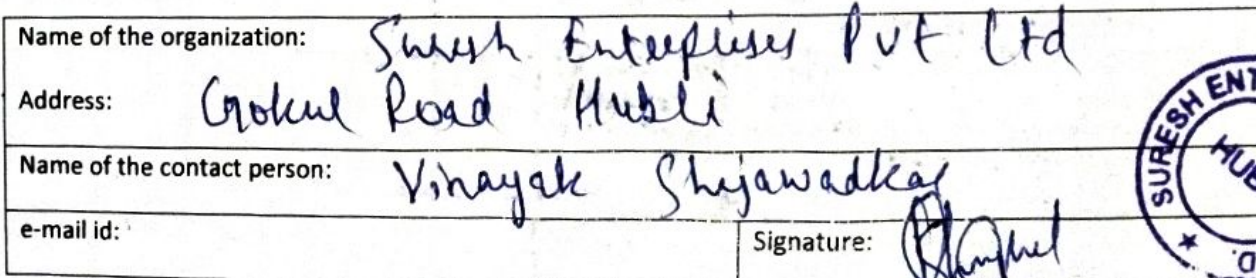 Name of the organization: Suresh Enterprises Pvt Ltd
Address: Gokul Road Hubli
Name of the contact person: Vinayak Shijawadkar
e-mail id:
Signature:
SURESH ENT
HUB
D.